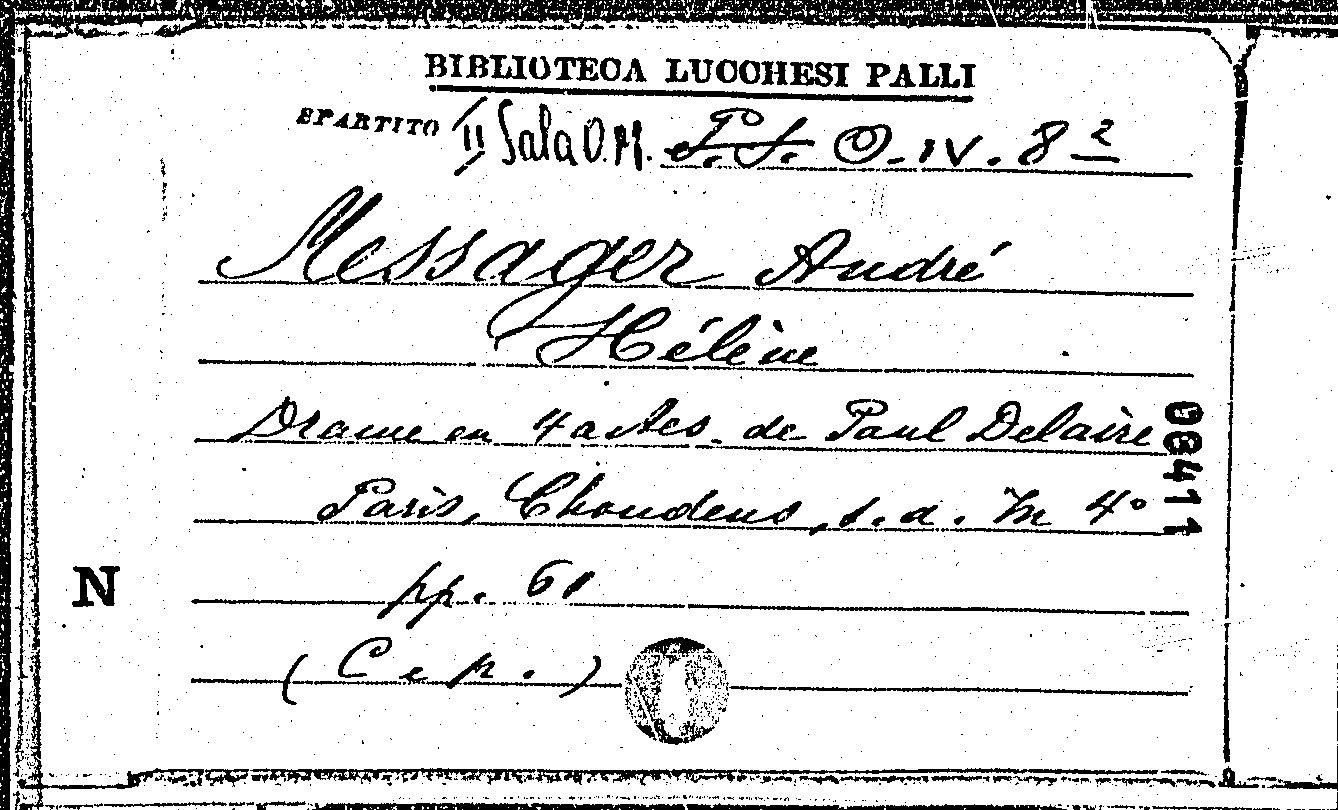 BIBLIOTECA LUCCHESI PALLI
EPARTITO II Sala O.M. P.S. O.IV.8²
Messager André
Hélène
Drame en 4 actes de Paul Delaire
Paris, Choudens, s.d. In 4°
pp. 61
(C e p.)
N
08411